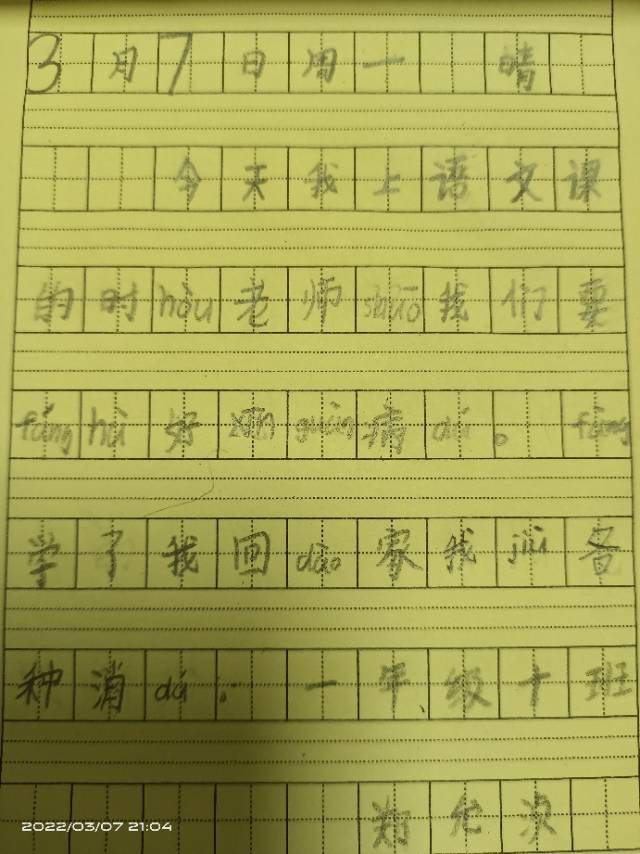 3月7日周一 晴
今天我上语文课
的时hòu老师shuō我们要
fáng hù好xīn guān病dú。fàng
学了我回dào家我jiù各
种消dú。一年级十班
郑允浈
2022/03/07 21:04